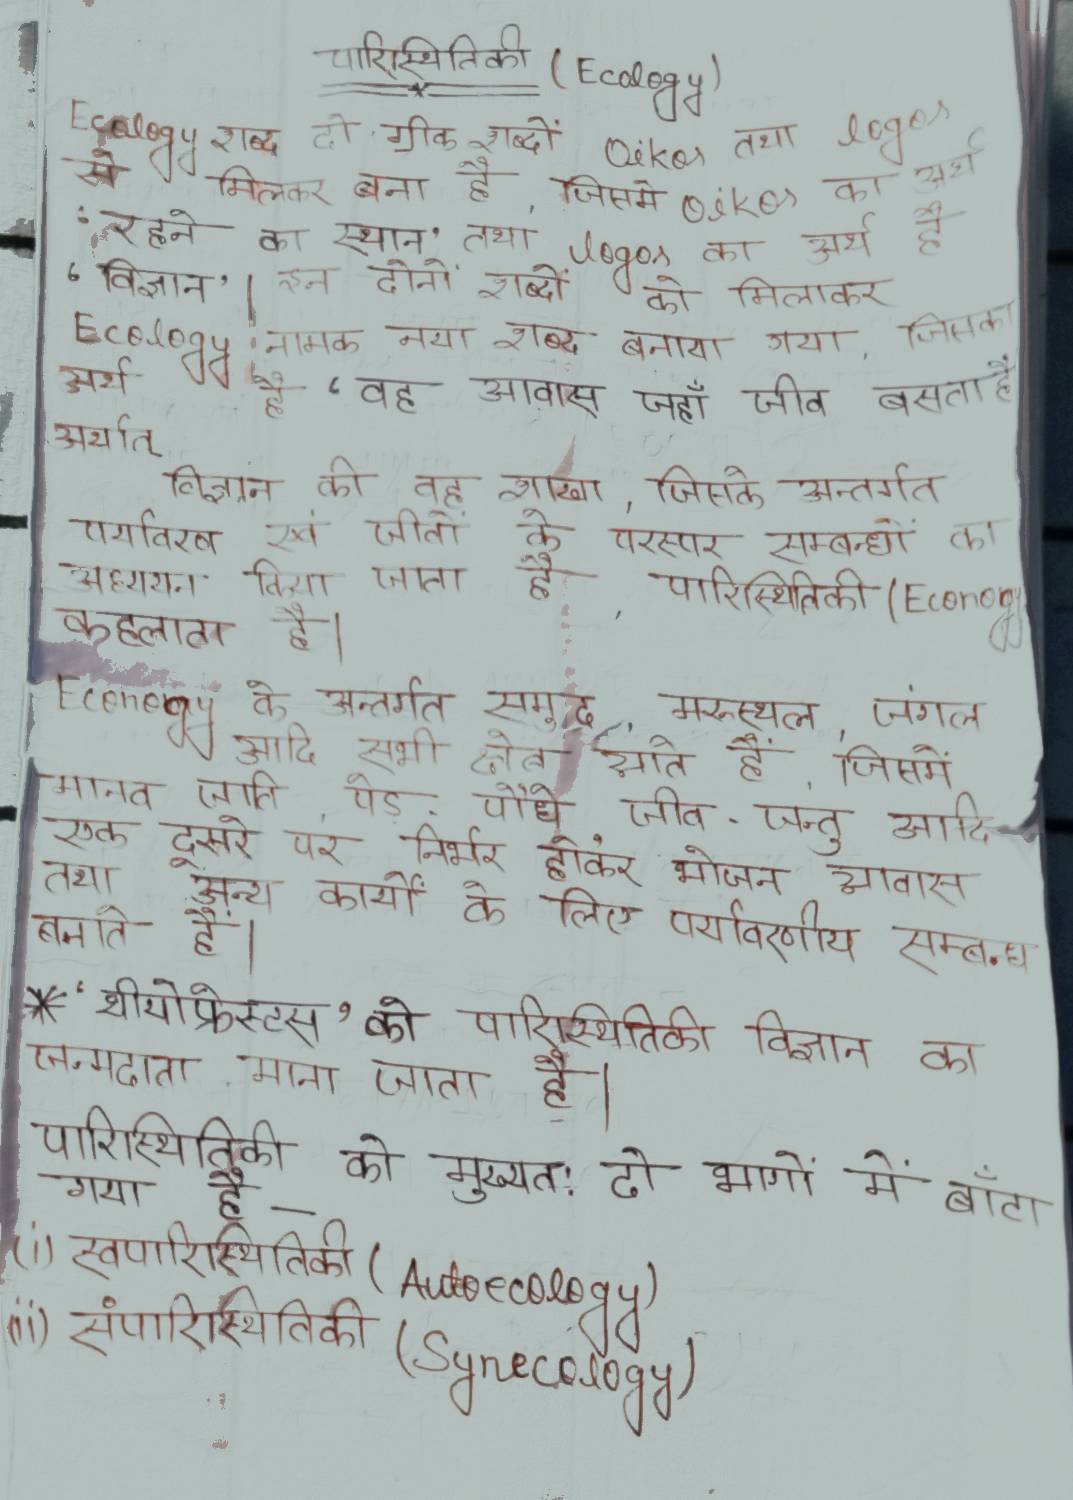 पारिस्थितिकी (Ecology)
Ecology शब्द दो ग्रीक शब्दों Oikos तथा logos
से मिलकर बना है, जिसमे oikos का अर्थ
'रहने का स्थान' तथा logos का अर्थ है
'विज्ञान'। इन दोनों शब्दों को मिलाकर
Ecology नामक नया शब्द बनाया गया, जिसका
अर्थ है 'वह आवास जहाँ जीव बसता है
अर्थात्
विज्ञान की वह शाखा, जिसके अन्तर्गत
पर्यावरण एवं जीवों के परस्पर सम्बन्धों का
अध्ययन किया जाता है, पारिस्थितिकी (Econogy
कहलाता है।
Econogy के अन्तर्गत समुद्र, मरुस्थल, जंगल
आदि सभी क्षेत्र आते हैं, जिसमें
मानव जाति पेड़-पौधे जीव-जन्तु आदि
एक दूसरे पर निर्भर होकर भोजन आवास
तथा अन्य कार्यों के लिए पर्यावरणीय सम्बन्ध
बनाते हैं।
* 'थीयोफ्रेस्टस' को पारिस्थितिकी विज्ञान का
जन्मदाता माना जाता है।
पारिस्थितिकी को मुख्यतः दो भागों में बाँटा
गया है –
(i) स्वपारिस्थितिकी (Autoecology)
(ii) संपारिस्थितिकी (Synecology)